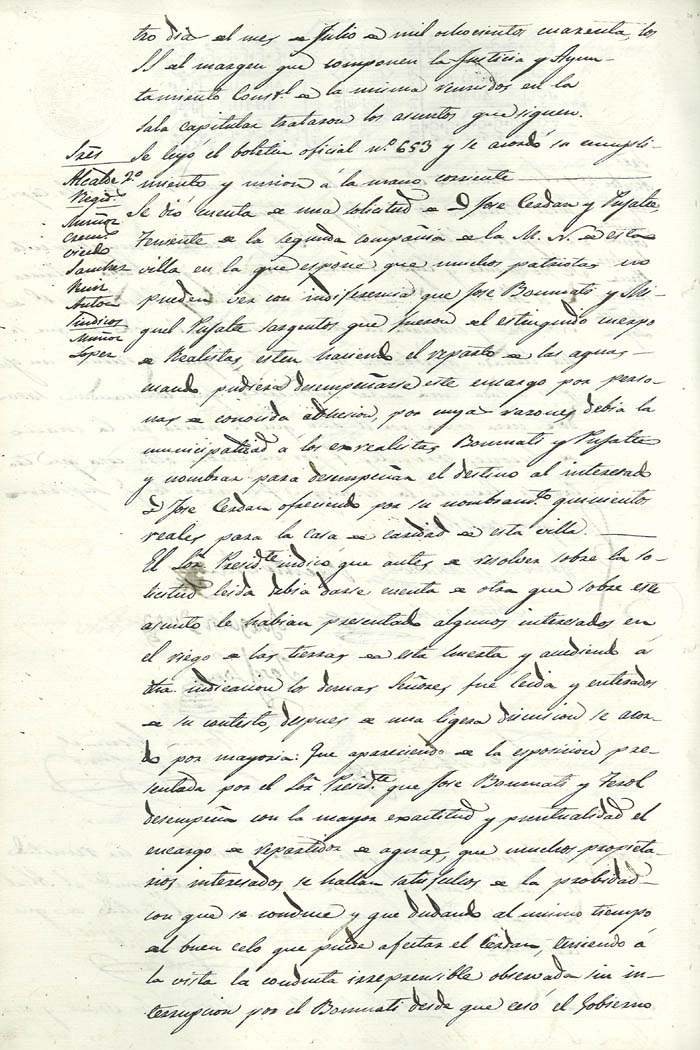 tro dia del mes de Julio de mil ochocientos cuarenta, los
SS del margen que componen la Justicia y Ayun-
tamiento Constl. de la misma reunidos en la
sala capitular trataron los asuntos que siguen.
Sres
Alcalde 2º
Regid.s
Muñoz
Sanchez
Ruiz
Anton
Sindicos
Muñoz
Lopez
Se leyó el boletin oficial nº 653 y se acordó su cumpli-
miento y union á la mano corriente
Se dió cuenta de una solicitud de D Jose Cerdan y Pujalte,
Teniente de la segunda compañia de la M. N. de esta
villa en la que espone que muchos patriotas no
pueden ver con indiferencia que Jose Bonmati y Mi-
guel Pujalte sargentos que fueron del estinguido cuerpo
de Realistas, esten haciendo el reparto de las aguas
cuando pudiera desempeñarse este encargo por perso-
nas de conocida adhesion, por cuyas razones debia la
municipalidad á los exrealistas Bonmati y Pujalte
y nombrar para desempeñar el destino al interesado
D Jose Cerdan ofreciendo por su nombramto. quinientos
reales para la casa de caridad de esta villa.
El Sor. Presidte. indicó que antes de resolver sobre la so-
licitud leida debia darse cuenta de otra que sobre este
asunto le habian presentado algunos interesados en
el riego de las tierras de esta huerta y accediendo á
dha. indicacion los demas Señores fué leida y enterados
de su contesto, despues de una ligera discusion se acor-
dó por mayoria: Que apareciendo de la esposicion pre-
sentada por el Sor. Presidte. que Jose Bonmati y Terol
desempeña con la mayor exactitud y puntualidad el
encargo de repartidor de aguas, que muchos propieta-
rios interesados se hallan satisfechos de la probidad
con que se conduce y que dudando al mismo tiempo
del buen celo que puede afectar el Cerdan, teniendo á
la vista la conducta irreprensible observada sin in-
terrupcion por el Bonmati desde que ceso el Gobierno